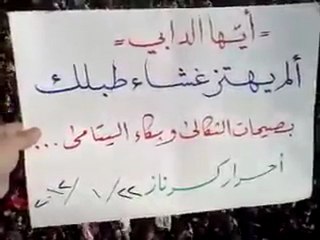 = أيّها الدابي =
ألم يهتز غشاء طبلك
بصيحات الثكالى وبكاء اليتامى ...
أحرار كرناز ٢٢ / ١ / ٢٠١٢